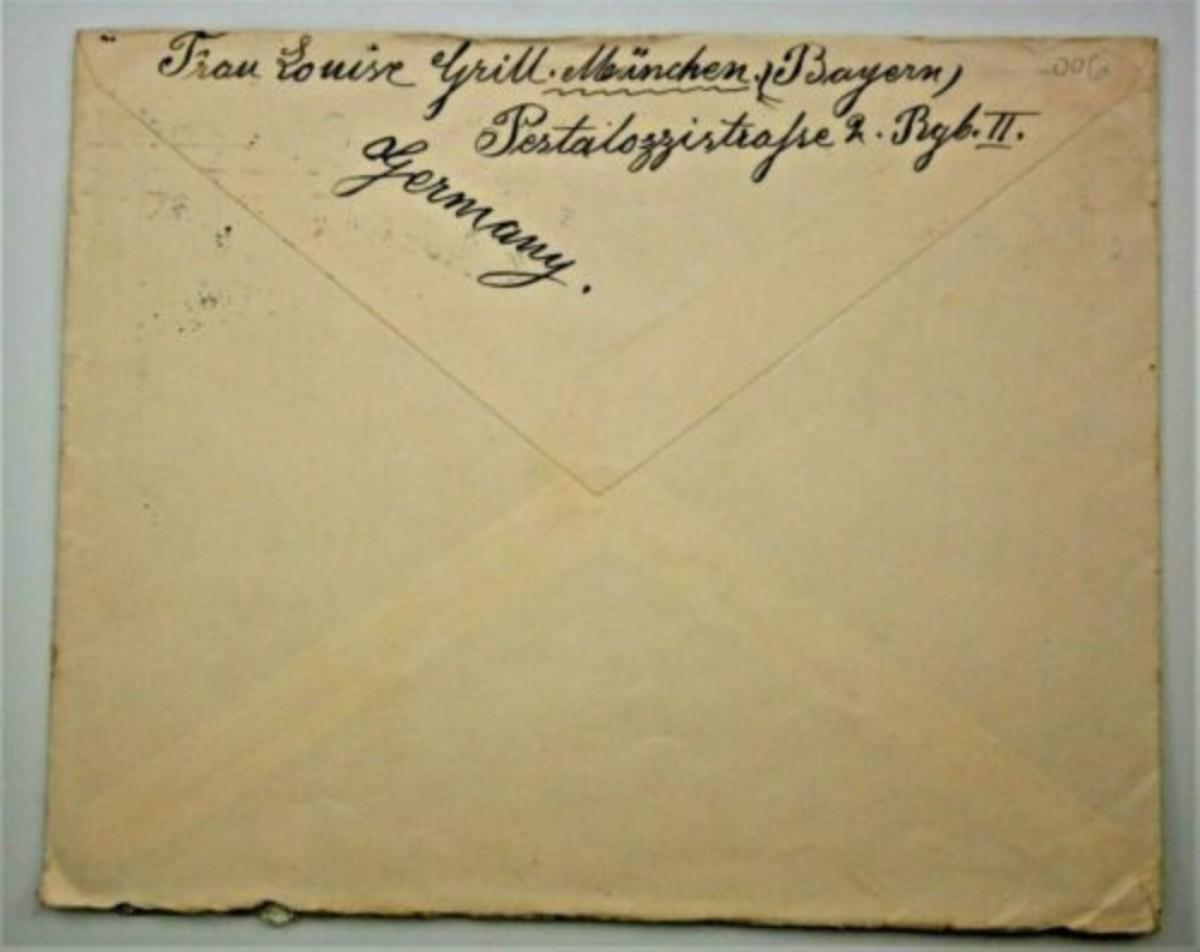 Frau Louise Grill. München. (Bayern)
Pestalozzistraſse 2. Rgb. II.
Germany.